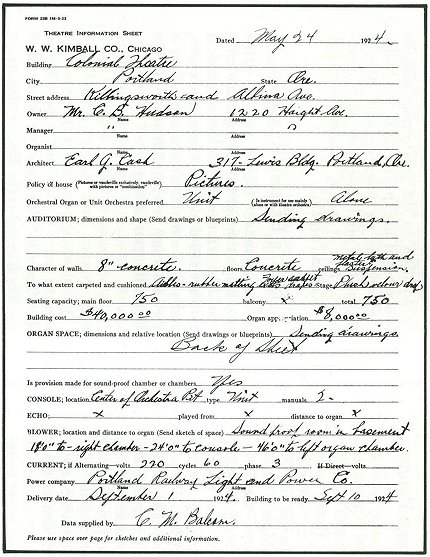 FORM 23B 1M-5-23
THEATRE INFORMATION SHEET
W. W. KIMBALL CO., CHICAGO
Dated May 24 1924
Building Colonial Theatre
City Portland State Ore.
Street address Killingsworth and Albina Ave.
Owner Mr. C. S. Hudson 1220 Haight Ave.
Name Address
Manager " "
Name Address
Organist
Name Address
Architect Earl G. Cash 317- Lewis Bldg. Portland, Ore.
Name Address
Policy of house (Pictures or vaudeville exclusively, vaudeville with pictures or "combination") Pictures.
Orchestral Organ or Unit Orchestra preferred Unit (Is instrument for use mainly alone or with theatre orchestra) Alone
AUDITORIUM; dimensions and shape (Send drawings or blueprints) Sending drawings.
metal lath and
Character of walls 8" concrete. floors Concrete ceilings plaster suspension.
To what extent carpeted and cushioned Aisles - rubber matting Stage Plush velour drop
Seating capacity; main floor 750 balcony x total 750
Building cost $40,000.00 Organ appropriation $8,000.00
ORGAN SPACE; dimensions and relative location (Send drawings or blueprints) Sending drawings
Back of Sheet
Is provision made for sound-proof chamber or chambers Yes
CONSOLE; location Center of Orchestra Pit type Unit manuals 2-
ECHO; x played from x distance to organ x
BLOWER; location and distance to organ (Send sketch of space) Sound proof room in basement
18'0" to right chamber - 24'0" to console - 46'0" to left organ chamber.
CURRENT; if Alternating—volts 220 cycles 60 phase 3 If Direct—volts
Power company Portland Railway Light and Power Co.
Name Address
Delivery date September 1 1924. Building to be ready Sept 10 1924
Data supplied by C. M. Balcom.
Please use space over page for sketches and additional information.